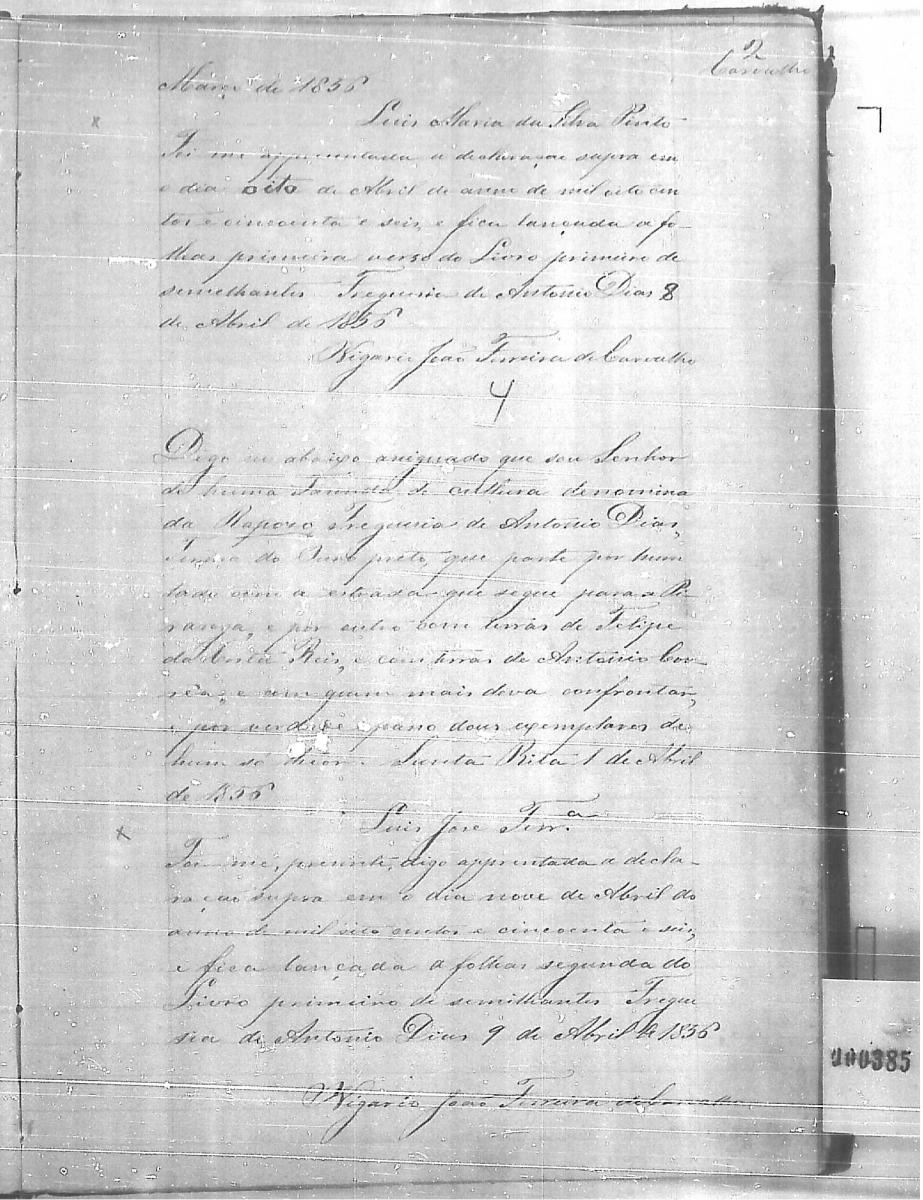 2
Carvalho
Março de 1856
Luis Maria da Silva Pinto
Foi me appresentada a declaração supra em
o dia oito de Abril de anno de mil oito cen
tos e cincoenta e seis, e fica lançada a fo-
lhas primeira verso do Livro primeiro de
semelhantes Freguesia de Antonio Dias 8
de Abril de 1856
Vigario João Ferreira de Carvalho
4
Digo eu abaixo assignado que sou Senhor
de huma Fazenda de cultura denomina
da Rapozo Freguesia de Antonio Dias,
Termo do Ouro preto, que parte por hum
lado com a estrada que segue para
e por outro com terras de Felipe
da Reis, e com terras de Antonio Cor
rêa, e com quem mais deva confrontar,
e por verdade passo dous exemplares de
hum só theor. Santa Rita 1 de Abril
de 1856
Luis José Ferr.ª
Foi me, presente, digo apprentada a decla-
ração supra em o dia nove de Abril do
anno de mil oito centos e cincoenta e seis,
e fica lançada a folhas segunda do
Livro primeiro de semilhantes Fregue
sia de Antonio Dias 9 de Abril de 1856
Vigario João Ferreira de Carvalho
000385